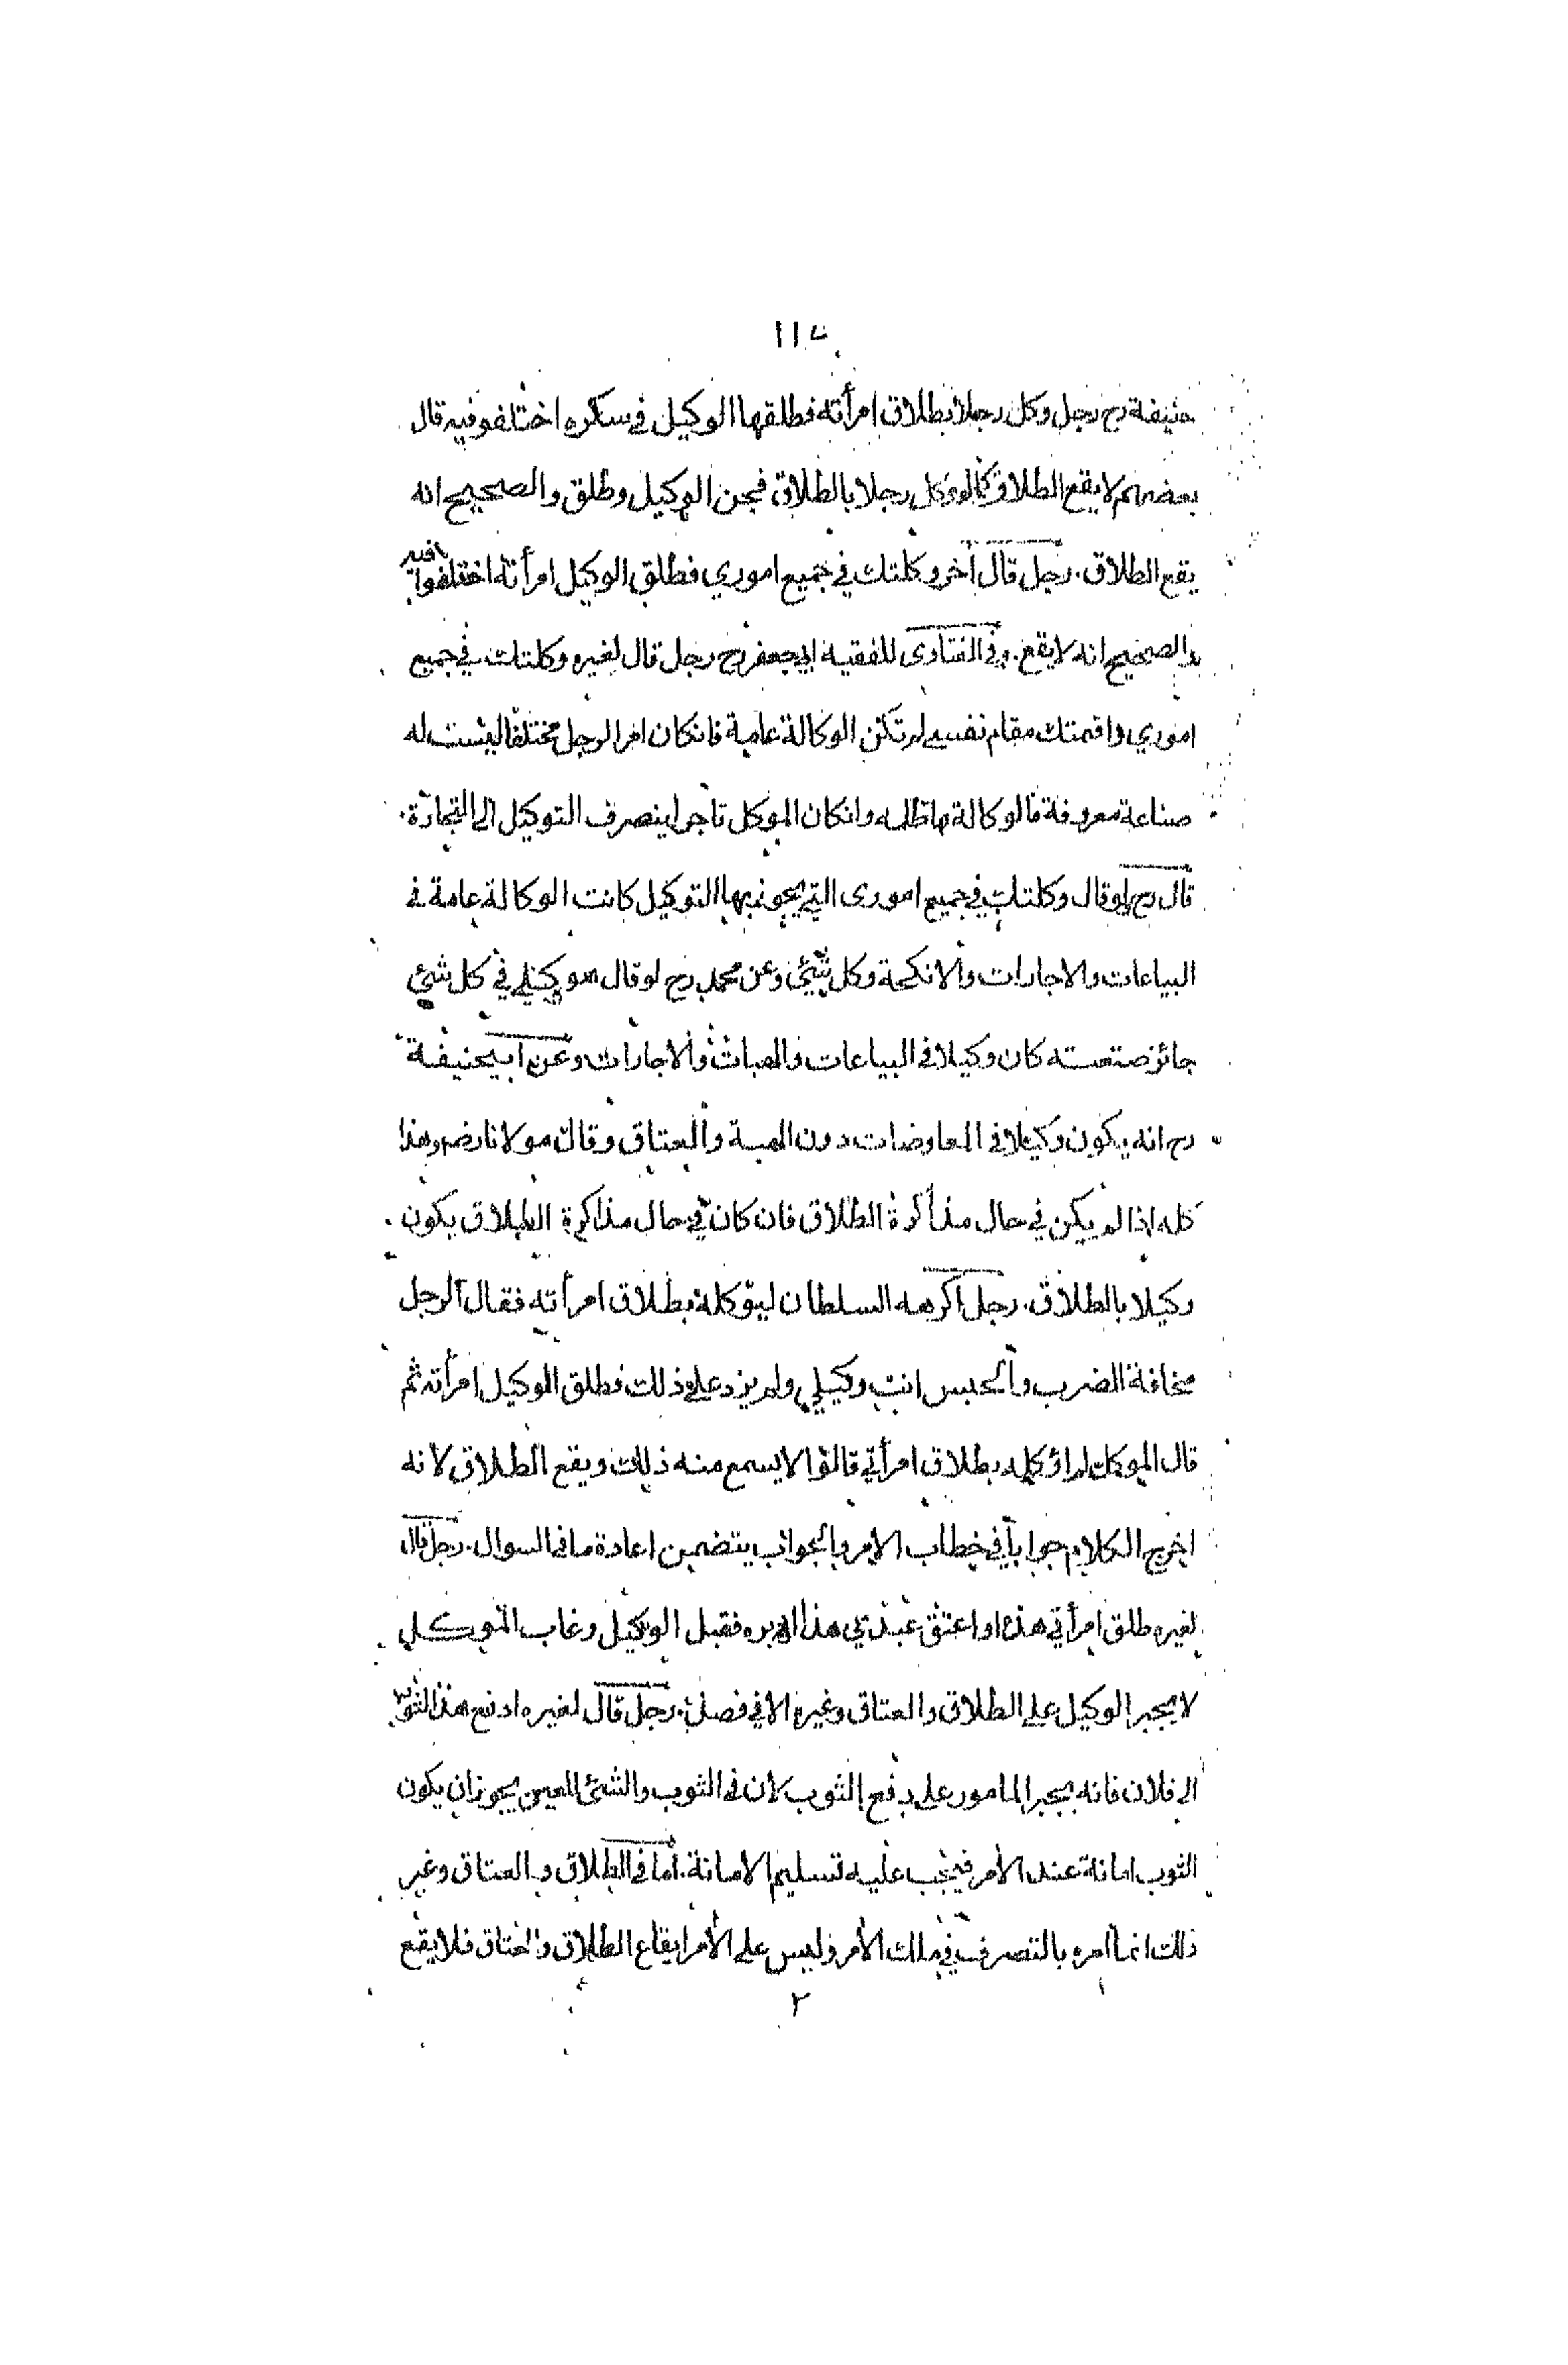 ١١٧
حنيفة رح رجل وكل رجلا بطلاق امرأته فطلقها الوكيل في سكره اختلفو فيه قال
بعضهم لا يقع الطلاق كما لو وكل رجلا بالطلاق فجن الوكيل وطلق والصحيح انه
يقع الطلاق. رجل قال آخر وكلتك في جميع اموري فطلق الوكيل امرأته اختلفوا فيه
والصحيح انه لا يقع. وفي الفتاوى للفقيه ابي جعفر رح رجل قال لغيره وكلتك في جميع
اموري واقمتك مقام نفسي لم تكن الوكالة عامة فانكان امر الرجل مختلفا ليست له
صناعة معروفة فالوكالة باطلة وانكان الموكل تاجرا ينصرف التوكيل الى التجارة.
قال رح لو قال وكلتك في جميع اموري التي يجوز بها التوكيل كانت الوكالة عامة في
البياعات والاجارات والانكحة وكل شئ وعن محمد رح لو قال هو وكيلي في كل شئ
جائز صنعته كان وكيلا في البياعات والهبات والاجارات وعن ابيحنيفة
رح انه يكون وكيلا في المعاوضات دون الهبة والعتاق وقال مولانا رضه وهذا
كله اذا لم يكن في حال مذاكرة الطلاق فان كان في حال مذاكرة الطلاق يكون
وكيلا بالطلاق. رجل اكرهه السلطان ليوكله بطلاق امرأته فقال الرجل
مخافة الضرب والحبس انت وكيلي ولم يزد على ذلك فطلق الوكيل امرأته ثم
قال الموكل لم اوكله بطلاق امرأتي قالوا لا يسمع منه ذلك ويقع الطلاق لانه
اخرج الكلام جوابا في خطاب الامر والجواب يتضمن اعادة ما في السوال. رجل قال
لغيره طلق امرأتي هذه او اعتق عبدي هذا او دبره فقبل الوكيل وغاب الموكل
لا يجبر الوكيل على الطلاق والعتاق وغيره الا في فصل. رجل قال لغيره ادفع هذا الثوب
الى فلان فانه يجبر المامور على دفع الثوب لان في الثوب والشئ المعين يجوز ان يكون
الثوب امانة عند الامر فيجب عليه تسليم الامانة. اما في الطلاق والعتاق وغير
ذلك انما امره بالتصرف في ملك الامر وليس على الامر ايقاع الطلاق والعتاق فلا يقع
٢